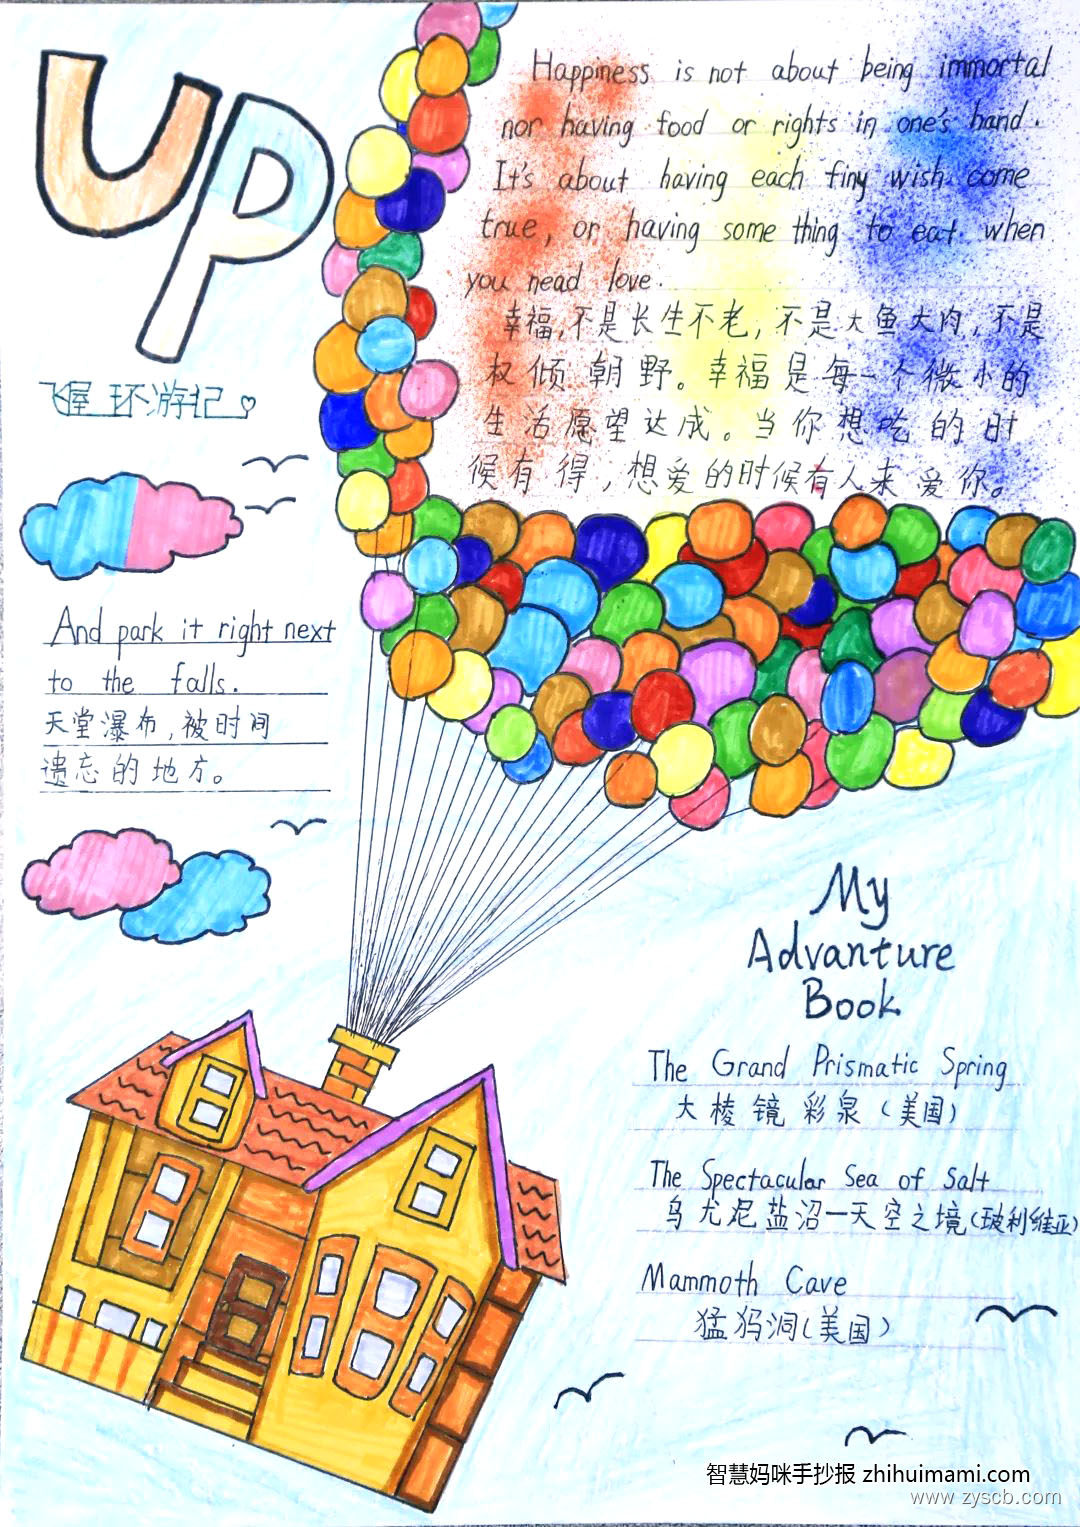 UP
飞屋环游记
Happiness is not about being immortal
nor having food or rights in one's hand.
It's about having each finy wish come
true, or having some thing to eat when
you nead love.
幸福,不是长生不老,不是大鱼大肉,不是
权倾朝野。幸福是每一个微小的
生活愿望达成。当你想吃的时
候有得,想爱的时候有人来爱你。
And park it right next
to the falls.
天堂瀑布,被时间
遗忘的地方。
My
Advanture
Book
The Grand Prismatic Spring
大棱镜彩泉(美国)
The Spectacular Sea of Salt
乌尤尼盐沼—天空之境(玻利维亚)
Mammoth Cave
猛犸洞(美国)
智慧妈咪手抄报 zhihuimami.com
www.zyscb.com